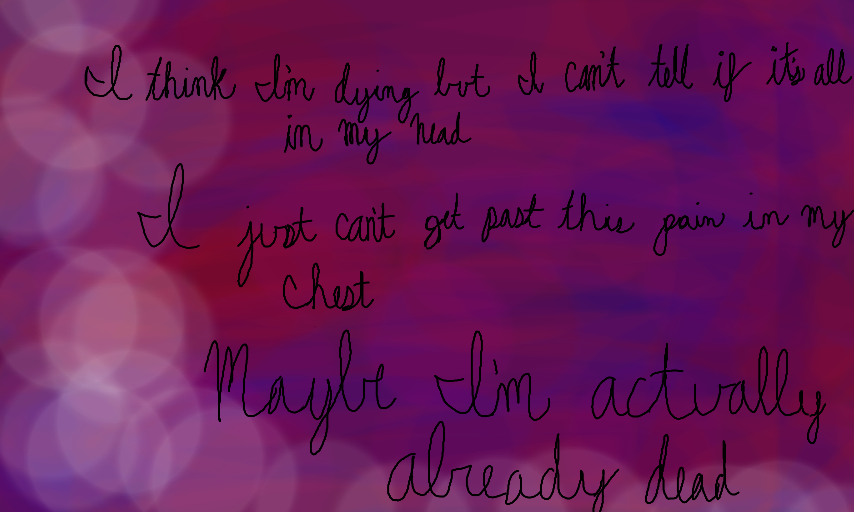 I think I'm dying but I can't tell if it's all
in my head
I just can't get past this pain in my
chest
Maybe I'm actually
already dead